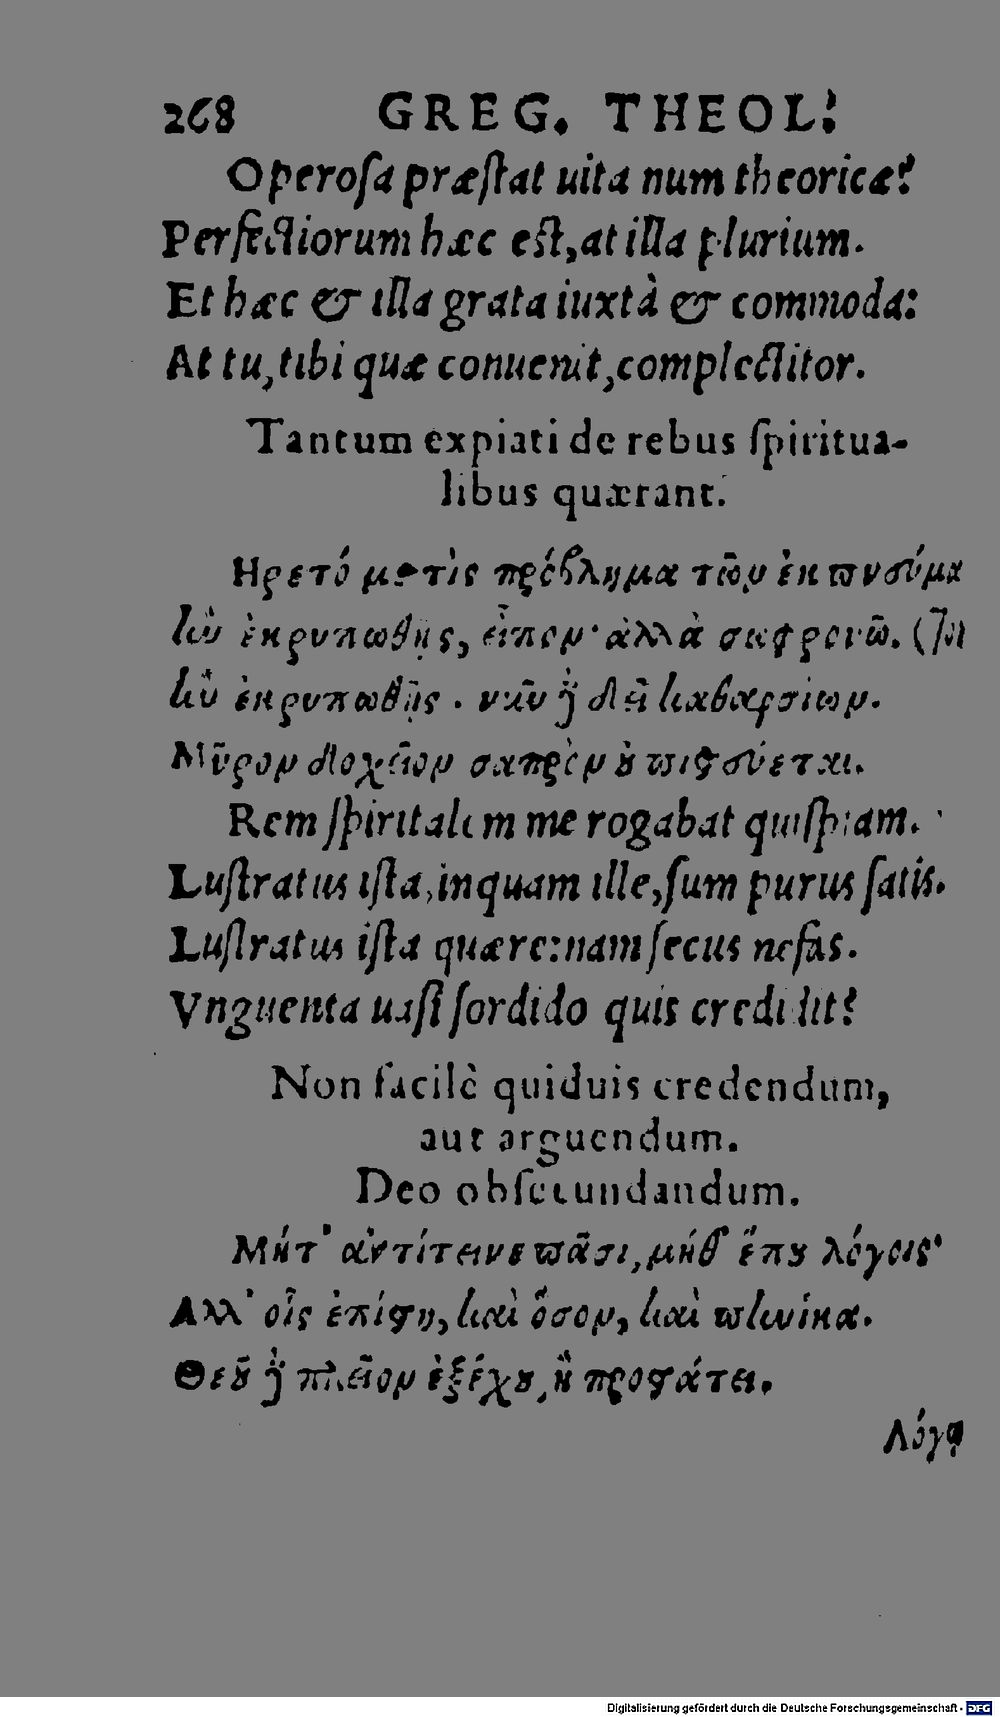 268 GREG. THEOL.
Operoſa præſtat uita num theoricæ?
Perfectiorum hæc eſt, at illa plurium.
Et hæc & illa grata iuxtà & commoda:
At tu, tibi quæ conuenit, complectitor.
Tantum expiati de rebus ſpiritua-
libus quærant.
Ηρετό με τὶς πρόβλημα τῶν ἐκ πνσύμα
ἐκρυπώθης, εἶπον· ἀλλὰ σωφρονῶ. (τοσ
ἐκρυπώθης. νῦν δεῖ καθαρσίων.
Μῦρον δοχεῖον σαπρὸν οὐ πιστεύεται.
Rem ſpiritalem me rogabat quiſpiam.
Luſtratus iſta, inquam ille, ſum purus ſatis.
Luſtratus iſta quære: nam ſecus nefas.
Vnguenta uaſi ſordido quis credidit?
Non facilè quiduis credendum,
aut arguendum.
Deo obſecundandum.
Μήτ' ἀντίτεινε πᾶσι, μήθ' ἕπου λόγοις·
Αλλ' οἷς ἐπίστῃ, καὶ ὅσον, καὶ πηνίκα.
Θεοῦ πλεῖον ἐξέχου, ἢ προστάτει.
Λόγῳ
Digitalisierung gefördert durch die Deutsche Forschungsgemeinschaft - DFG